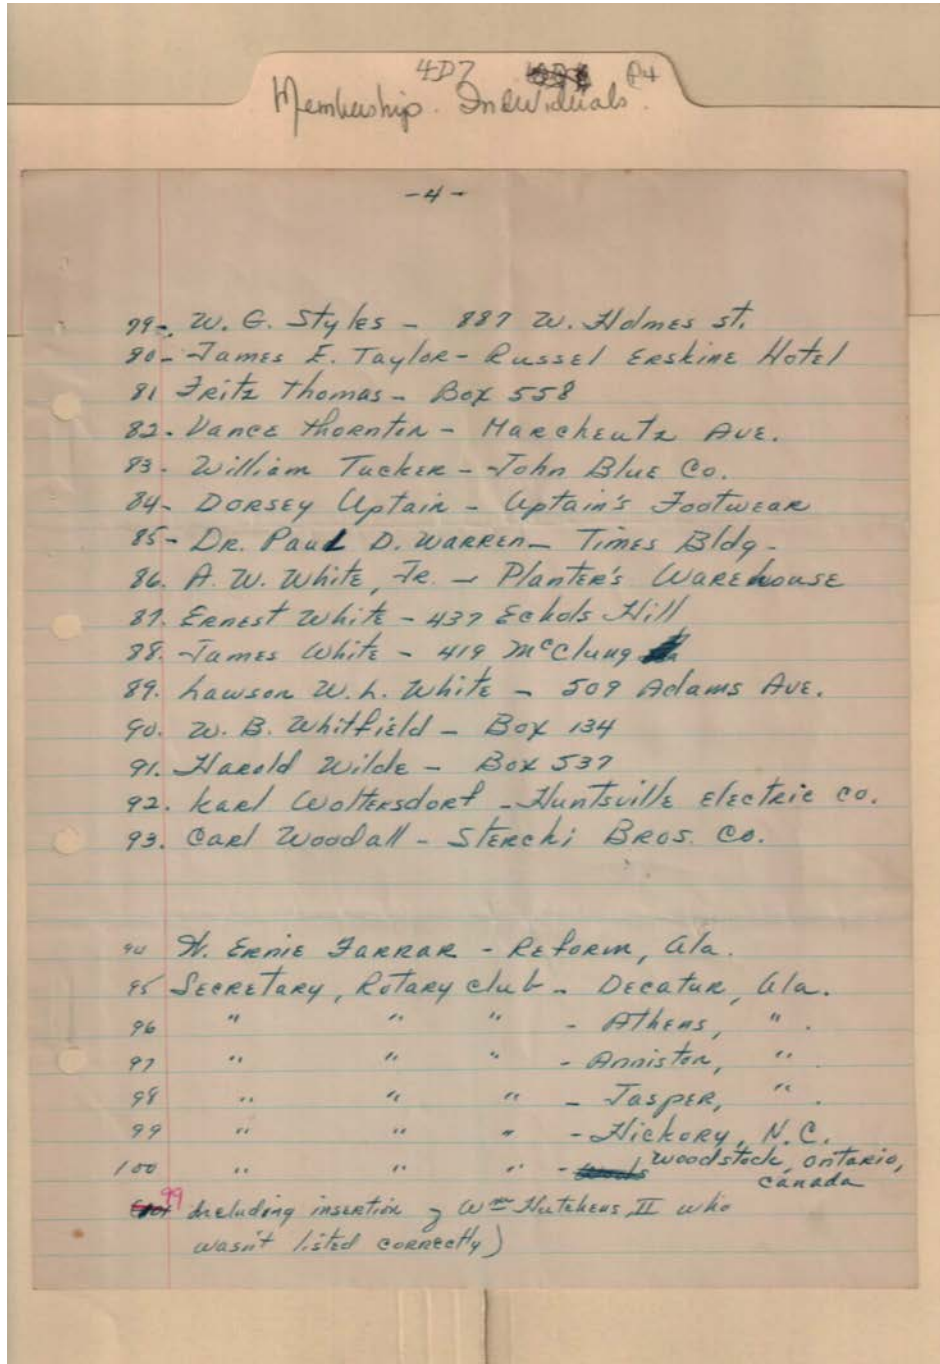 4D7 P4
Membership. Individuals.
-4-
79-. W. G. Styles - 887 W. Holmes st.
80- James E. Taylor - Russel Erskine Hotel
81 Fritz Thomas - Box 558
82. Vance Thornton - Marcheutz Ave.
83. William Tucker - John Blue Co.
84- Dorsey Uptain - Uptain's Footwear
85- Dr. Paul D. Warren - Times Bldg -
86. A. W. White, Jr. - Planter's Warehouse
87. Ernest White - 437 Echols Hill
88. James White - 419 McClung
89. Lawson W. L. White - 509 Adams Ave.
90. W. B. Whitfield - Box 134
91. Harold Wilde - Box 537
92. Karl Woltersdorf - Huntsville Electric Co.
93. Carl Woodall - Sterchi Bros. Co.
94 H. Ernie Farrar - Reform, Ala.
95 Secretary, Rotary club - Decatur, Ala.
96 " " " - Athens, " .
97 " " " - Anniston, " .
98 " " " - Jasper, " .
99 " " " - Hickory, N.C.
100 " " " - Woodstock, Ontario,
Canada
99 Including insertion of Wm Hutchens, II who
wasn't listed correctly)